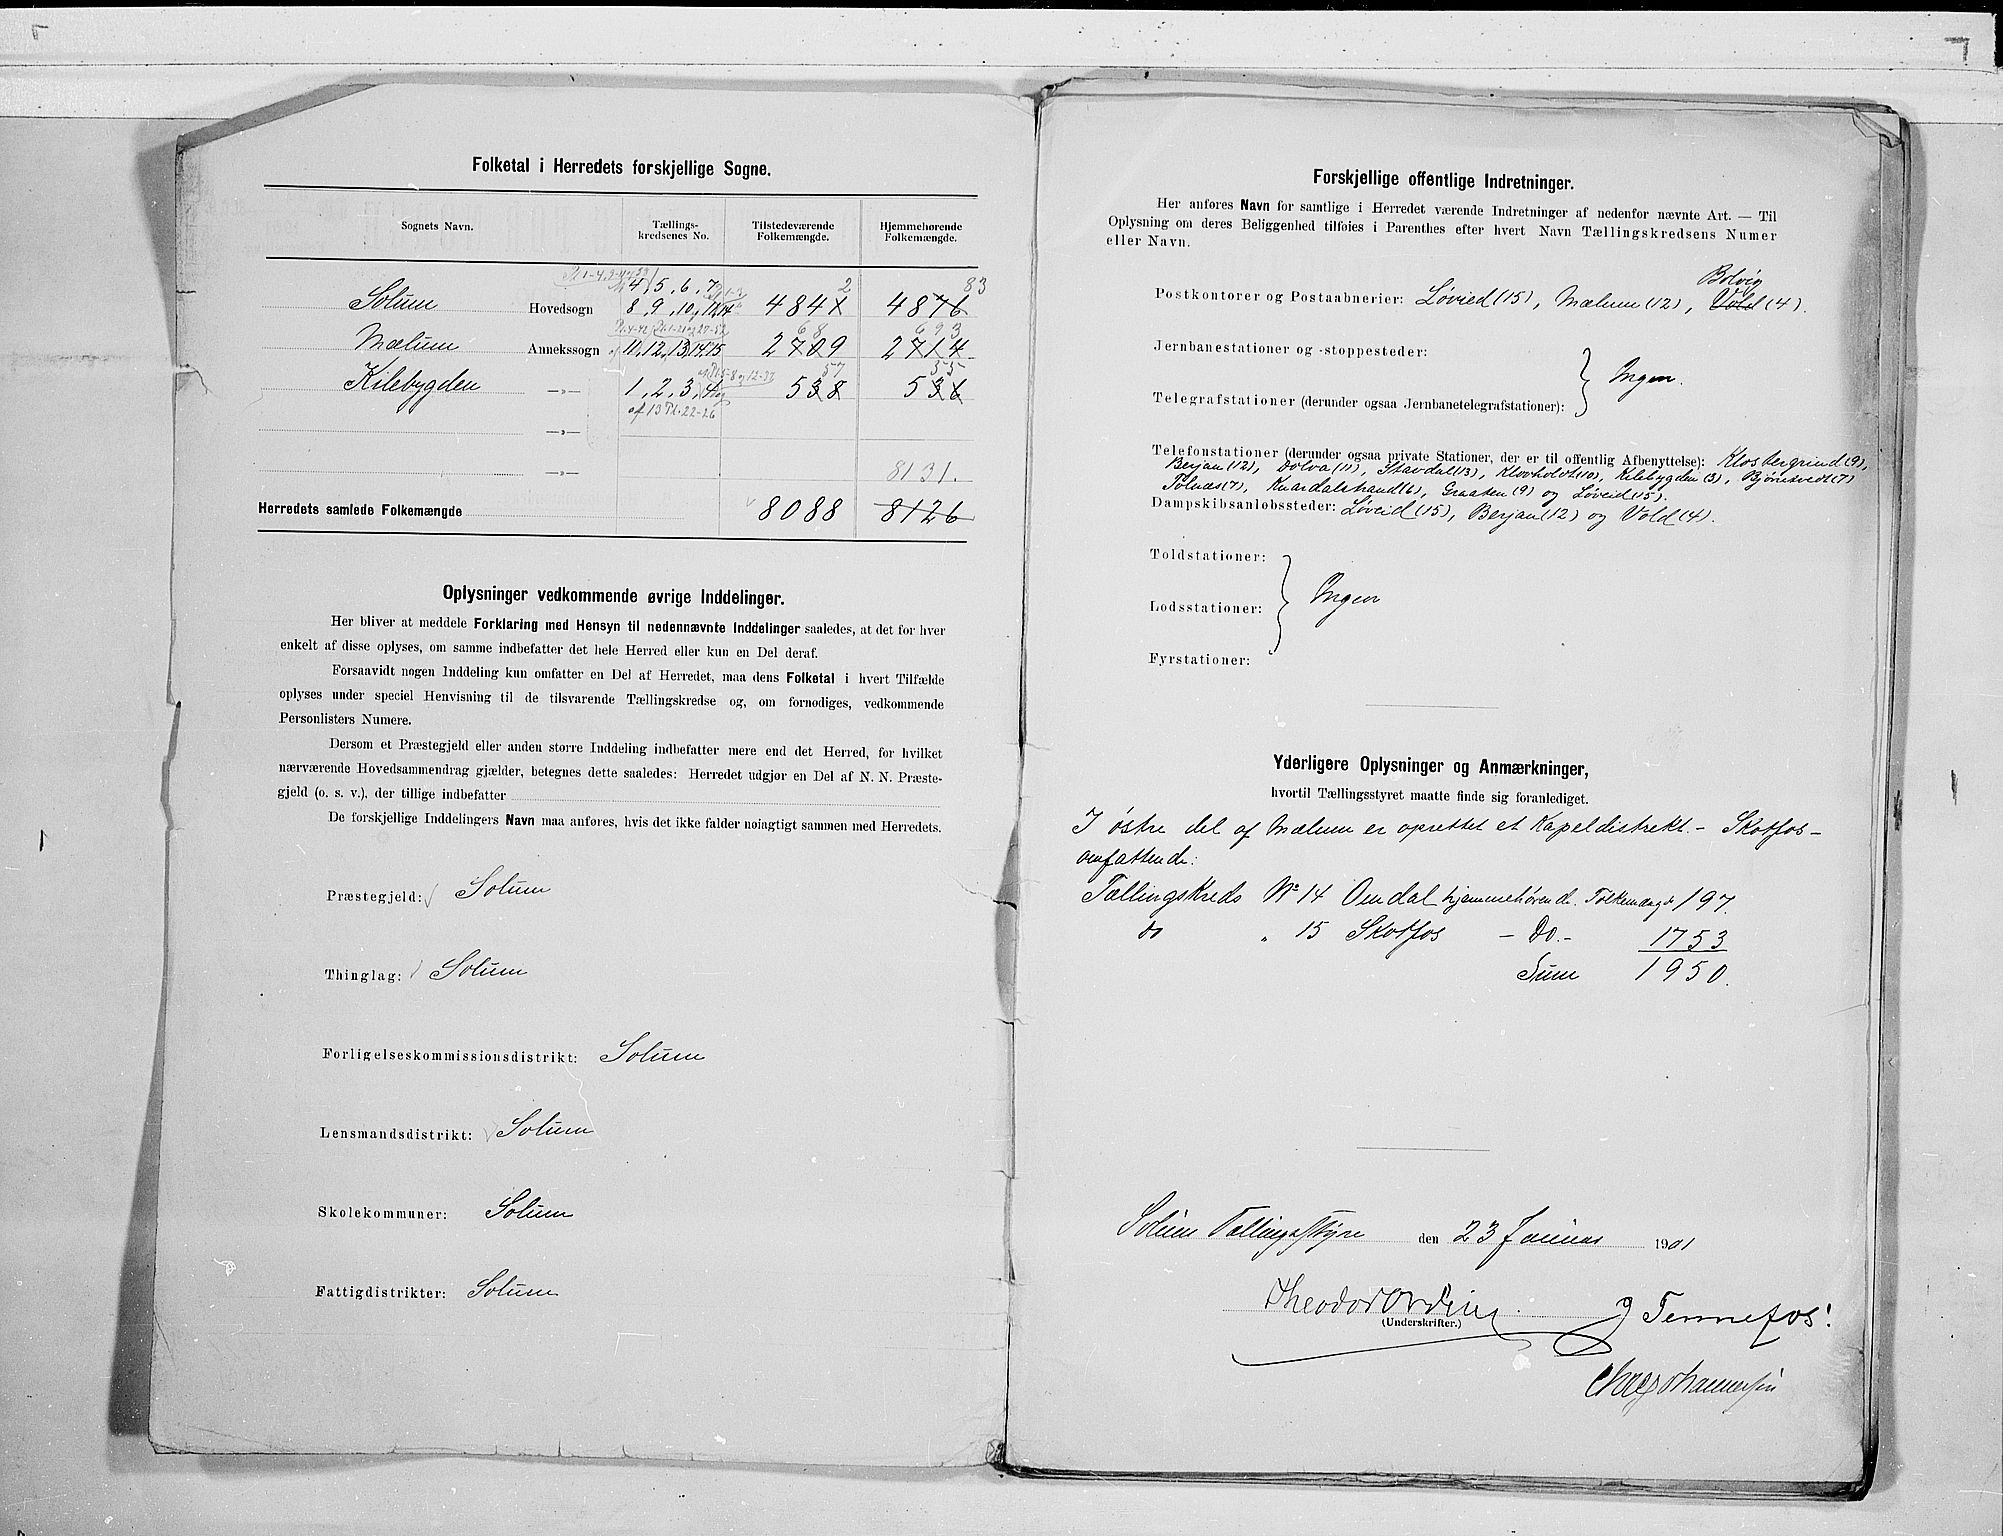 Folketal i Herredets forskjellige Sogne.
Sognets Navn. Tællings-kredsenes No. Tilstedeværende Folkemængde. Hjemmehørende Folkemængde.
Solum Hovedsogn 4, 5, 6, 7 8, 9, 10, 4841 2 4876 83
Mælum Annekssogn 11, 12, 13, 14, 15 2709 68 2714 693
Kilebygden —„— 1, 2, 3, 538 57 536 55
af 13 Pl. 22-26
—„—
—„— 8131.
Herredets samlede Folkemængde 8088 8126
Oplysninger vedkommende øvrige Inddelinger.
Her bliver at meddele Forklaring med Hensyn til nedennævnte Inddelinger saaledes, at det for hver
enkelt af disse oplyses, om samme indbefatter det hele Herred eller kun en Del deraf.
Forsaavidt nogen Inddeling kun omfatter en Del af Herredet, maa dens Folketal i hvert Tilfælde
oplyses under speciel Henvisning til de tilsvarende Tællingskredse og, om fornødiges, vedkommende
Personlisters Numere.
Dersom et Præstegjeld eller anden større Inddeling indbefatter mere end det Herred, for hvilket
nærværende Hovedsammendrag gjælder, betegnes dette saaledes: Herredet udgjør en Del af N. N. Præste-
gjeld (o. s. v.), der tillige indbefatter
De forskjellige Inddelingers Navn maa anføres, hvis det ikke falder nøiagtigt sammen med Herredets.
Præstegjeld: Solum
Thinglag: Solum
Forligelseskommissionsdistrikt: Solum
Lensmandsdistrikt: Solum
Skolekommuner: Solum
Fattigdistrikter: Solum
Forskjellige offentlige Indretninger.
Her anføres Navn for samtlige i Herredet værende Indretninger af nedenfor nævnte Art. — Til
Oplysning om deres Beliggenhed tilføies i Parenthes efter hvert Navn Tællingskredsens Numer
eller Navn.
Bolvig
Postkontorer og Postaabnerier: Løvied (15), Mælum (12), Vold (4).
Jernbanestationer og -stoppesteder:
Ingen.
Telegrafstationer (derunder ogsaa Jernbanetelegrafstationer):
Telefonstationer (derunder ogsaa private Stationer, der er til offentlig Afbenyttelse): Klostergrind (9),
Berjan (12), Dolva (11), Stavdal (13), Klovholdt (10), Kilebygden (3), Bjørntvedt (7)
Tolnæs (7), Knardalstrand (6), Graaten (9) og Løveid (15).
Dampskibsanløbssteder: Løveid (15), Berjan (12) og Vold (4).
Toldstationer:
Ingen
Lodsstationer:
Fyrstationer:
Yderligere Oplysninger og Anmærkninger,
hvortil Tællingsstyret maatte finde sig foranlediget.
I østre del af Mælum er oprettet et Kapeldistrekt. - Skotfos -
omfattende:
Tællingskreds No 14 Omdal hjemmehørende Folkemængde 197.
do „ 15 Skotfos - Do.- 1753
Sum 1950.
Solum Tællingsstyre den 23 Januar 1901
Theodor Ording. J Tennefos!
(Underskrifter.)